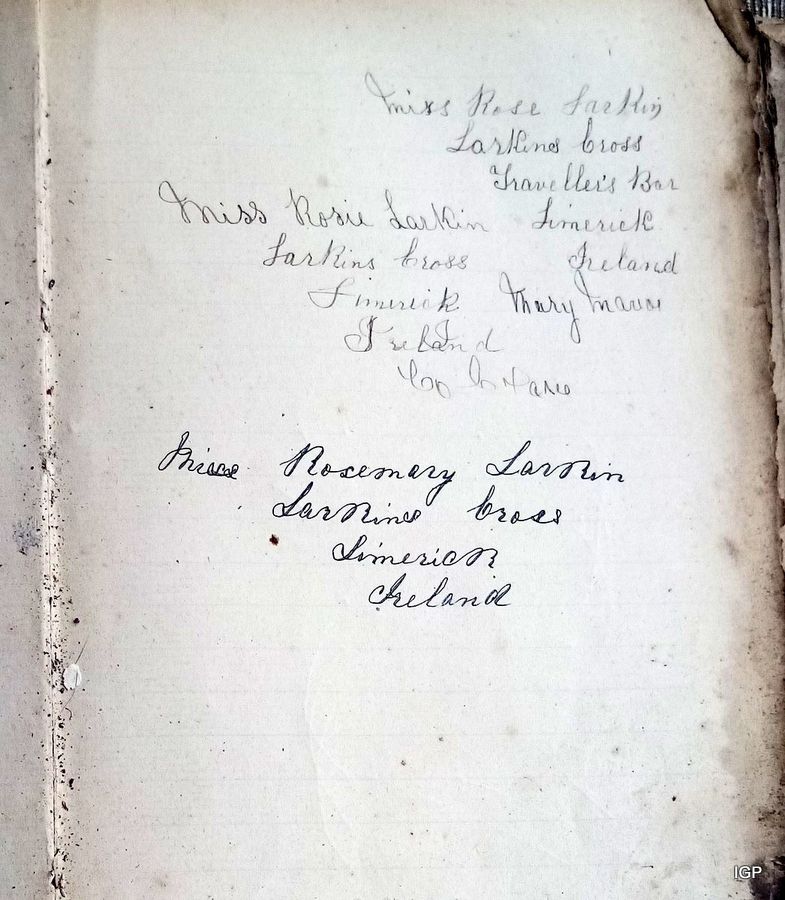 Miss Rose Larkin
Larkins Cross
Traveller's Bar
Limerick
Ireland
Mary
Miss Rosie Larkin
Larkins Cross
Limerick
Ireland
Co
Miss Rosemary Larkin
Larkins Cross
Limerick
Ireland
IGP